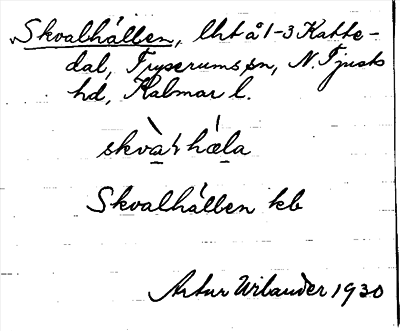 Skvalhällen, lht å 1-3 Katte-
dal, Tryserums sn, N. Tjusts
hd, Kalmar l.
skvàɬ hæla
Skvalhällen kb
Artur Wilander 1930